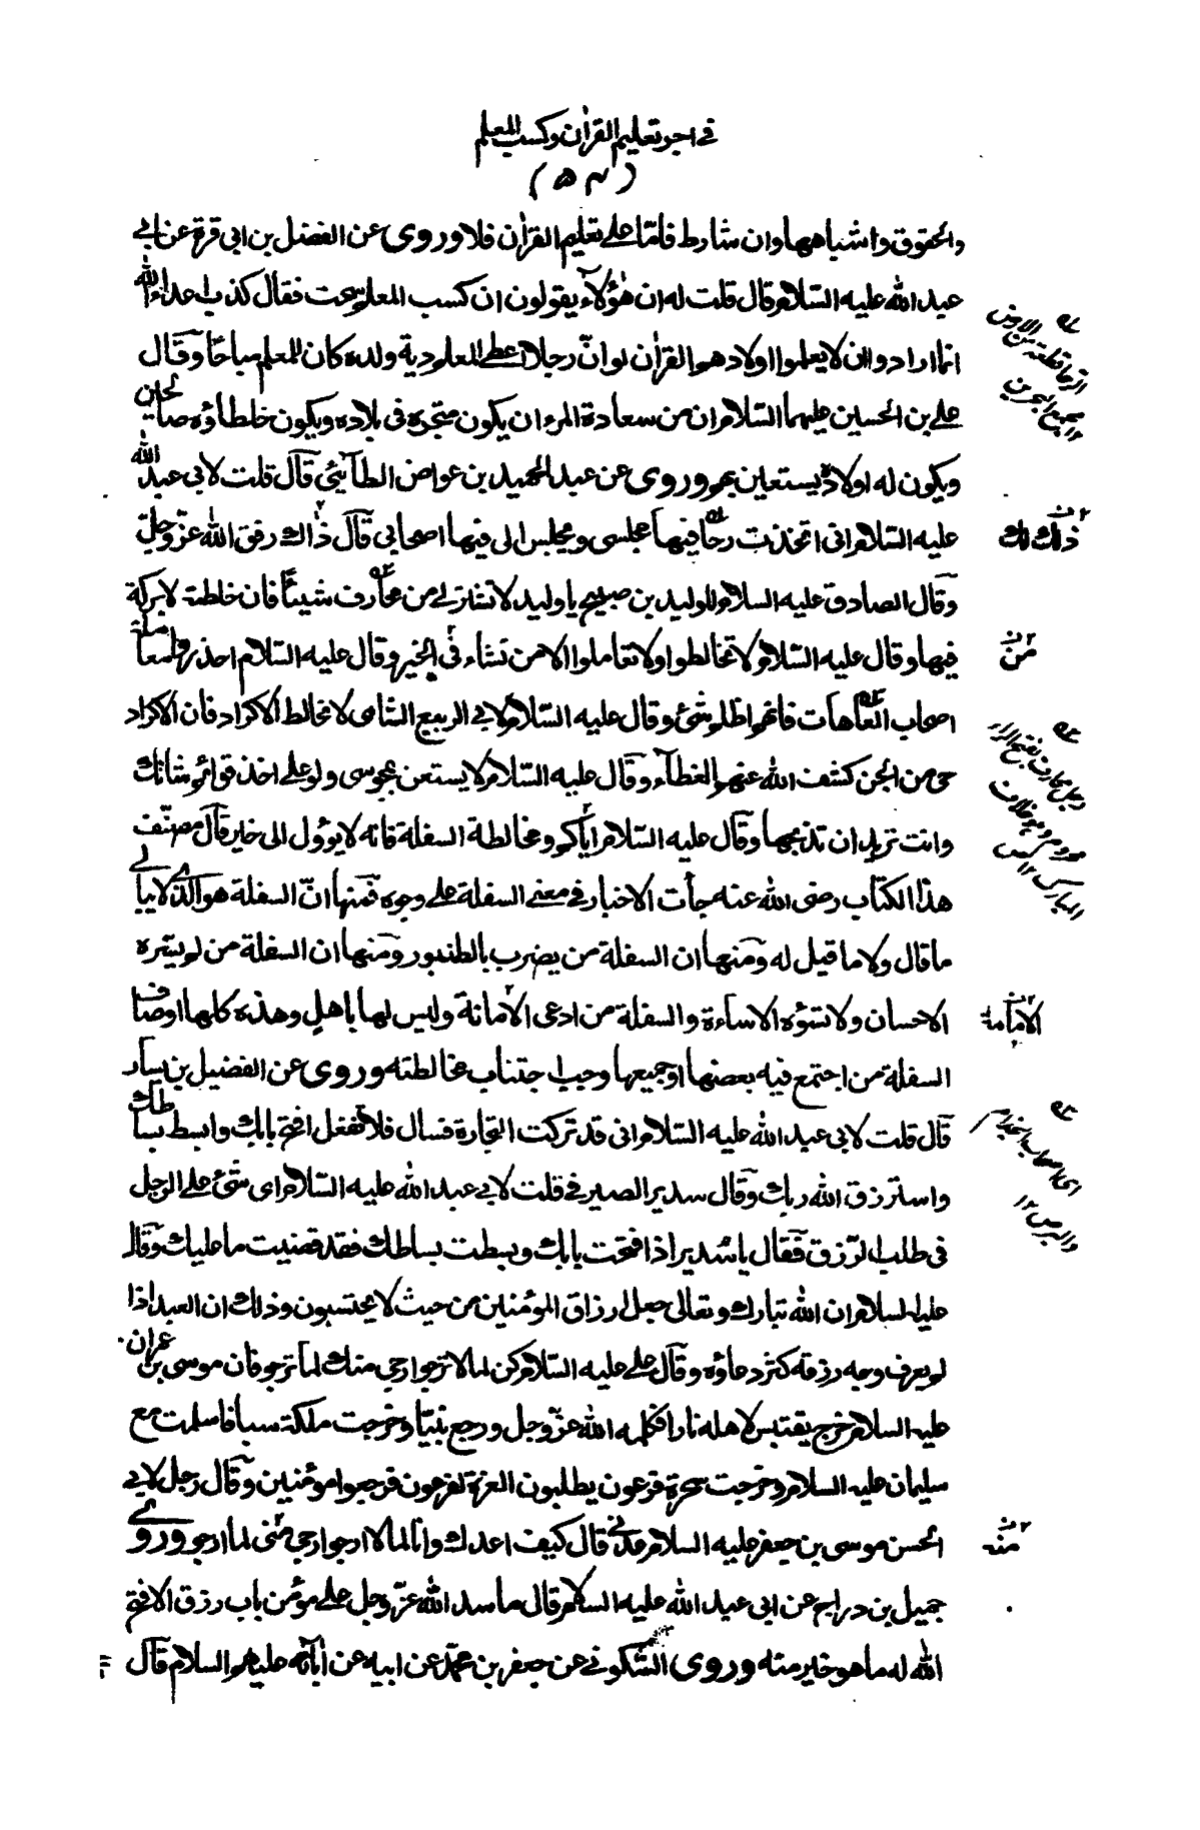 في اجر تعليم القرآن وكسب المعلم
(٥٣)
والحقوق واشباهها وان شارط فامّا على تعليم القرآن فلا وروى عن الفضل بن ابى قرة عن ابي
عبد الله عليه السّلام قال قلت له ان هؤلآء يقولون ان كسب المعلم سحت فقال كذب اعداء الله
انما ارادوا ان لا يعلموا اولادهم القرآن لو انّ رجلا اعطى المعلم دية ولده كان للمعلم مباحًا وقال
على بن الحسين عليهما السّلام ان من سعادة المرء ان يكون متجره فى بلاده ويكون خلطاؤه صالحين
ويكون له اولاد يستعين بهم وروى عن عبد الحميد بن عواض الطآئي قال قلت لابى عبد الله
عليه السّلام انى اتخذت رحًا فيها مجلسى ويجلس الى فيها اصحابى قال ذٰاك رفق الله عزّ وجلّ
وقال الصادق عليه السلام للوليد بن صبيح يا وليد لا تشتر لى من محارف شيئًا فان خلطته لا بركة
فيها وقال عليه السّلام لا تخالطوا ولا تعاملوا الا من نشاء في الخير وقال عليه السّلام احذروا معاملة
اصحاب العاهات فانهم اظلم شئ وقال عليه السّلام لابي الربيع الشامى لا تخالط الاكراد فان الاكراد
حى من الجن كشف الله عنهم الغطآء وقال عليه السّلام لا يستعن بمجوسى ولو على اخذ قوائم شاتك
وانت تريد ان تذبحها وقال عليه السّلام اياكم ومخالطة السفلة فانه لا يؤول الى خير قال مصنّف
هذا الكتاب رضى الله عنه جآت الاخبار في معنى السفلة على وجوه فمنها انّ السفلة هو الذى لا يبالي
ما قال ولا ما قيل له ومنها ان السفلة من يضرب بالطنبور ومنها ان السفلة من لم يسّره
الاحسان ولا تسؤه الاساءة والسفلة من ادعى الامانة وليس لها باهل وهذه كلها اوصاف
السفلة من اجتمع فيه بعضها او جميعها وجب اجتناب مخالطته وروى عن الفضيل بن يسار
قال قلت لابى عبد الله عليه السّلام انى قد تركت التجارة فسال فلا تفعل افتح بابك وابسط بساطك
واسترزق الله ربك وقال سدير الصير في قلت لابي عبد الله عليه السّلام اى شئ على الرجل
فى طلب الرّزق فقال يا سدير اذا فتحت بابك وبسطت بساطك فقد قضيت ما عليك وقال
عليه السلام ان الله تبارك وتعالى جعل ارزاق المؤمنين من حيث لا يحتسبون وذلك ان العبد اذا
لم يعرف وجه رزقه كثر دعاؤه وقال على عليه السّلام كن لما لا ترجوا رجى منك لما ترجو فان موسى بن عمران
عليه السلام خرج يقتبس لاهله نارا فكلمه الله عزّ وجل ورجع نبيّا وخرجت ملكة سبا فاسلمت مع
سليمان عليه السلام وخرجت سحرة فرعون يطلبون العزة لفرعون فرجعوا مؤمنين وقال رجل لابى
الحسن موسى بن جعفر عليه السلام عدنى قال كيف اعدك وانا لما لا ارجو ارجى منى لما ارجو وروى
جميل بن دراج عن ابى عبد الله عليه السلام قال ما سد الله عزّ وجل على مؤمن باب رزق الا فتح
الله له ما هو خير منه وروى السّكونى عن جعفر بن محمّد عن ابيه عن آبائه عليهم السلام قال
ذلك لك
من
الامامة
اى اصحاب الجذام
والبرص ١٢
منه